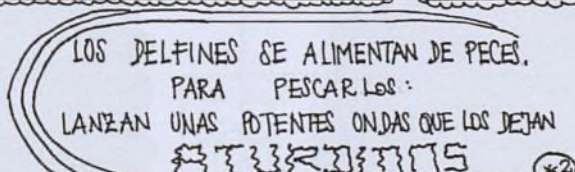 LOS DELFINES SE ALIMENTAN DE PECES.
PARA PESCARLOS:
LANZAN UNAS POTENTES ONDAS QUE LOS DEJAN
ATURDIDOS
*2